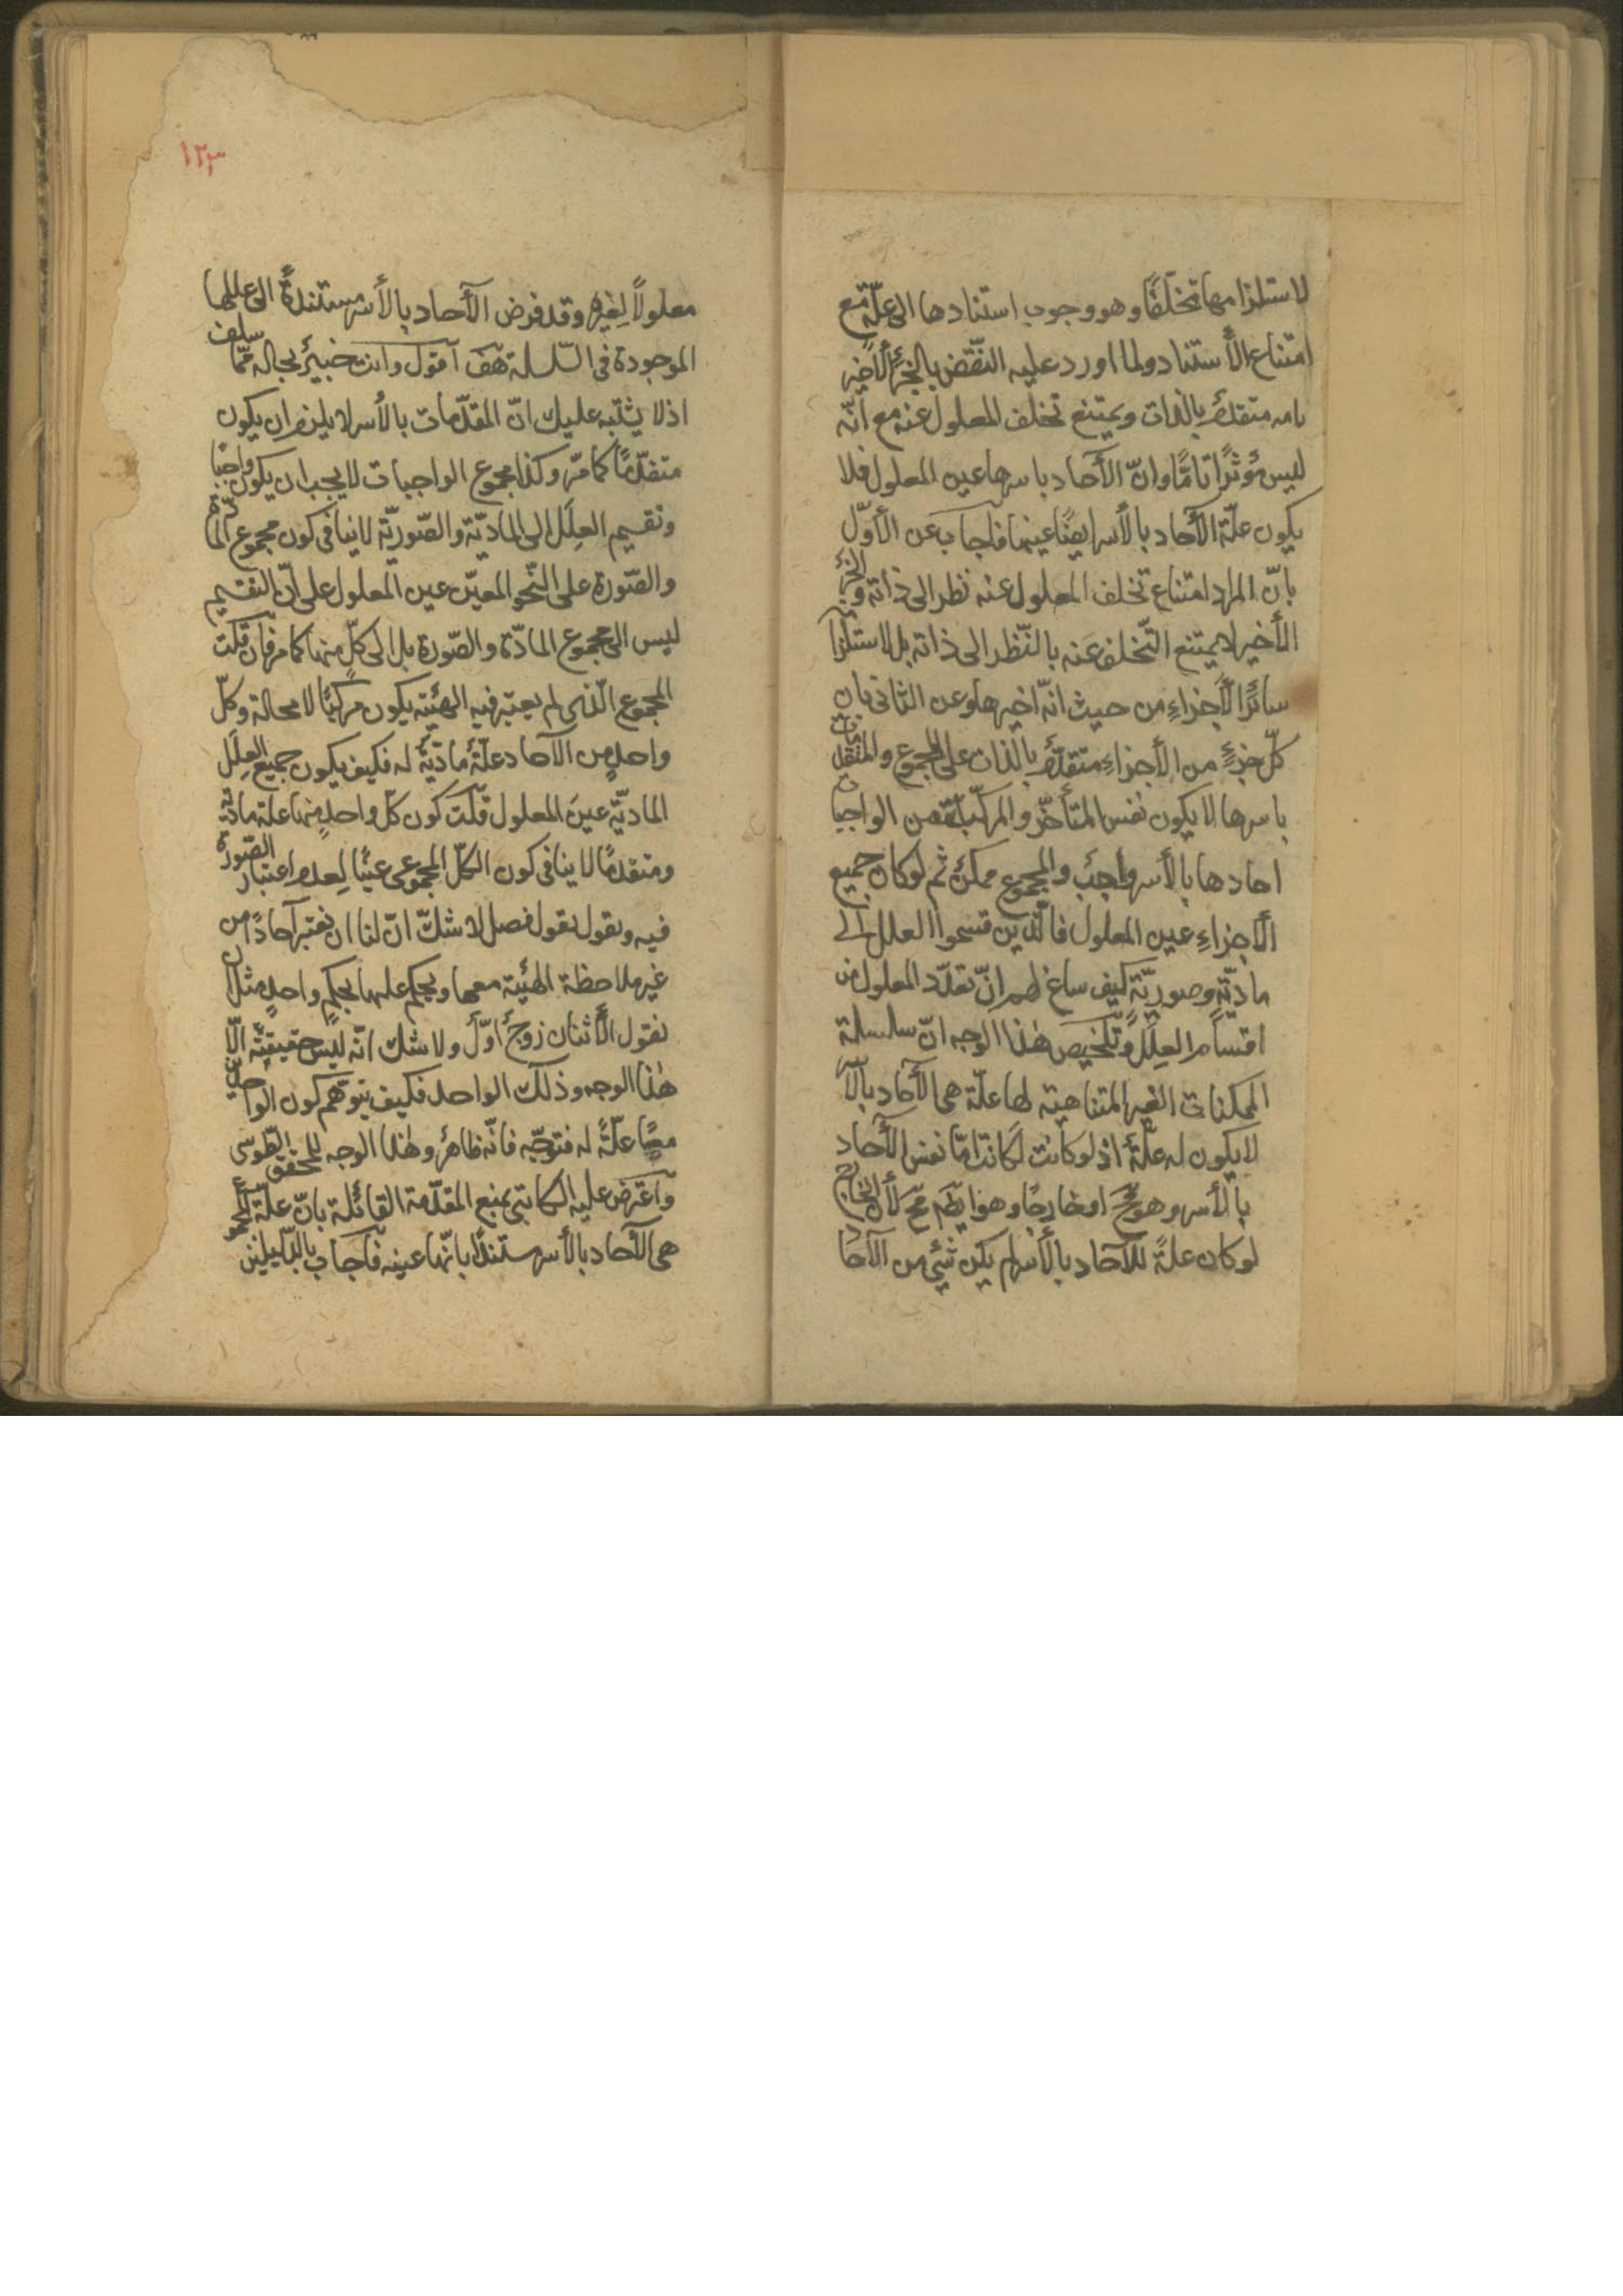 لاستلزامها تخلّفًا وهو وجوب استنادها الى علّة مع
امتناع الأستناد ولما اورد عليه النّقض بالجزء الأخير
بامه متقدم بالذات ويمتنع تخلف المعلول عنه مع انّه
ليس مؤثرًا تامًّا وانّ الآحاد باسرها عين المعلول فلا
يكون علّة الآحاد بالأسر ايضًا عينها فاجاب عن الأوّل
بانّ المراد امتناع تخلف المعلول عنه نظر الى ذاته والجزء
الأخير لا يمتنع التّخلف عنه بالنّظر الى ذاته بل لاستلزام
سائر الأجزاء من حيث انّه اخيرها وعن الثانى بان
كلّ جزءٍ من الأجزاء متقدّم بالذات على المجموع والمتقدمات
باسرها لا يكون نفس المتأخّر والمركّب من الواجبات
احادها بالأسر واجب والمجموع ممكن ثم لو كان جميع
الأجزاءِ عين المعلول فالّذين قسموا العلل الى
ماديّة وصوريّة كيف ساغ لهم انّ تعدّد المعلول من
اقسام العِلَل وتلخيص هٰذا الوجه انّ سلسلة
الممكنات الغير المتناهية لها علّة هى الآحاد بالأسر
لا يكون له علّة اذ لو كانت لكانت امّا نفس الآحاد
بالأسر وهو مح او خارجًا وهو ايضًا مح لأن الخارج
لو كان علةً للآحاد بالأسر لم يكن شئ من الآحاد
١٢٣
معلولاً لغيره وقد فرض الآحاد بالأسر مستندةً الى عللها
الموجودة فى السّلسلة هف اقول وانت خبير بحاله ممّا سلف
اذ لا يشتبه عليك انّ المقدّمات بالأسر لا يلزم ان يكون
متقدّمًا كما مرّ وكذا مجموع الواجبات لا يجب ان يكون واجبًا
وتقسيم العِلَل الى الماديّة والصّوريّة لا ينافى كون مجموع المادّة
والصّورة على النّحو المعيّن عين المعلول على انّ التقسيم
ليس الى مجموع المادّة والصّورة بل الى كلّ منهما كما مر فان قلت
المجموع الّذى لم يعتبر فيه الهيئة يكون مركبًا لا محالة وكلّ
واحدٍ من الآحاد علّة مادّيّة له فكيف يكون جميع العِلَل
الماديّة عينَ المعلول قلت كون كلّ واحدٍ منها علة ماديّة
ومتقدمًا لا ينافى كون الكلّ المجموعى عينًا لِعدم اعتبار الصّورة
فيه ونقول بقول فصل لا شكّ انّ لنا ان نعتبر آحادًا من
غير ملاحظة الهيئة معها ويحكم عليها بحكمٍ واحدٍ مثل ان
نقول الأثنان زوج أوّل ولا شك انّه ليس حقيقته الّا
هٰذا الوجه وذلك الواحد فكيف يتوهّم كون الواحدين
معًا علّةً له فتوجّه فانّه ظاهر وهٰذا الوجه للمحقق الطوسى
واعترض عليه الكاتبى بمنع المقدّمة القائلة بانّ علّة المجموع
هى الآحاد بالأسر مستندًا بانّها عينه فاجاب بالدّليلين